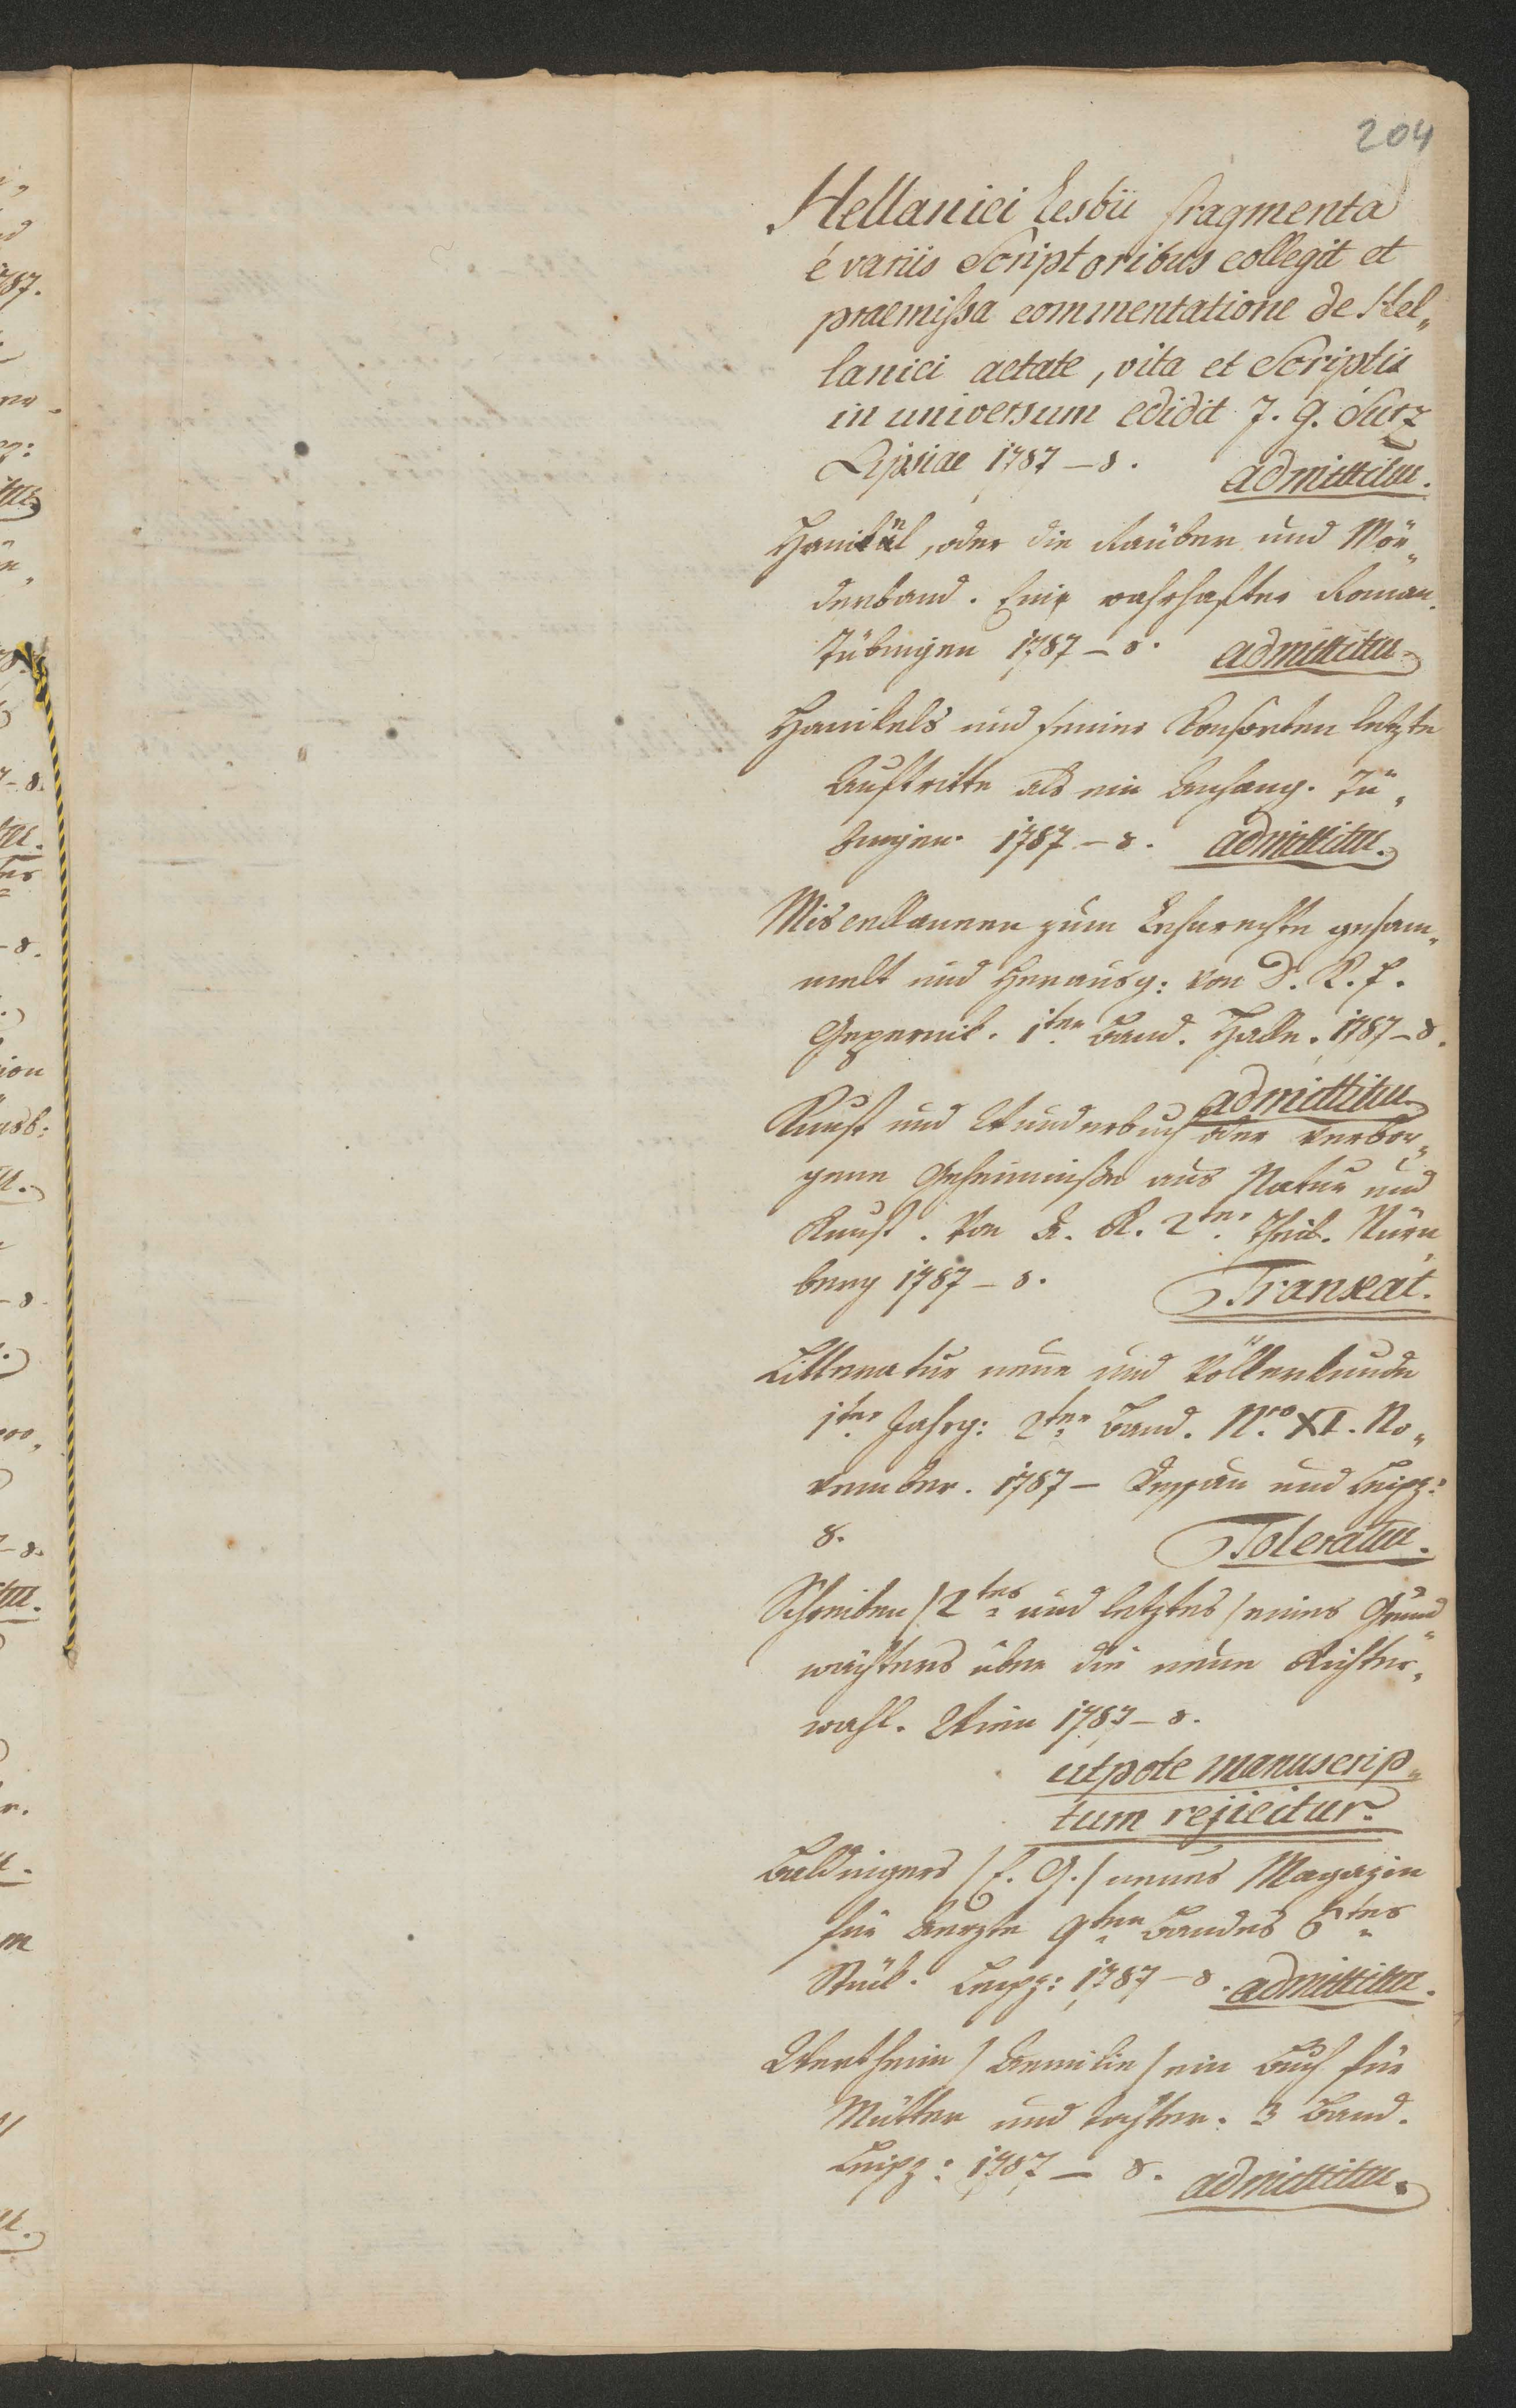 204
Hellanici Lesbii fragmenta
é variis Scriptoribus collegit et
praemissa commentatione de Hel„
lanici aetate, vita et Scriptis
in universum edidit J. G. Sturz
Lipsiae 1787 – 8. admittitur.
Hanikel, oder die Räuber und Mör„
derband. Eine wahrhafter Roman.
Tübingen 1787 – 8. admittitur
Hanikels und seiner Konsorten letzte
Auftritte als ein Anhang. Tü„
bingen 1787 – 8. admittitur.
Miscellaneen zum Lehnrechte gesam„
melt und herausg: von D. R. F.
Zepernik. 1ter Band. Halle. 1787 – 8.
admittitur
Kunst und Wunderbuch oder verbor„
gene Geheimnisse aus Natur und
Kunst. Von K. K. 2ter Theil. Nürn„
berg 1787 – 8. Transeat.
Litteratur neue und Völkerkunde
1ter Jahrg: 2ter Band. Nro XI. No„
vember. 1787 – Dessau und Leipz:
8. Toleratur.
Schreiben / 2tes und letztes / eines Grund„
wächters über die neue Richter„
wahl. Wien 1787 – 8.
utpote manuscrip„
tum rejicitur.
Baldingers / E. G. / neues Magazin
für Aerzte 9ten Bandes 6tes
Stük. Leipz: 1787 – 8. admittitur.
Wertheim / Aemilie / ein Buch für
Mütter und Töchter. 3 Band.
Leipz: 1787 – 8. admittitur.